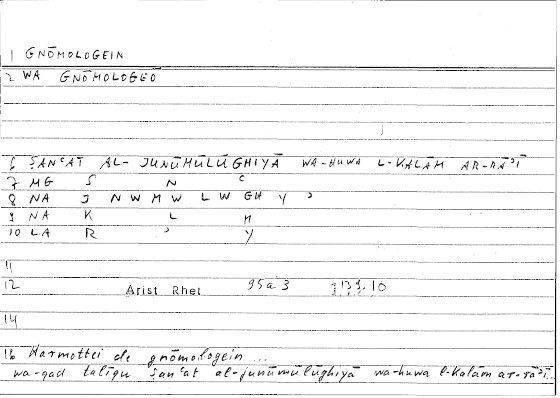 1 GNŌMOLOGEIN
2 WA GNŌMOLOGEŌ
6 ṢANʿAT AL- JUNŪMŪLŪGHIYĀ WA-HUWA L-KALĀM AR-RAʾĪ
7 MG Ṣ N ʿ
8 NA J N W M W L W GH Y ʾ
9 NA K L M
10 LA R ʾ Y
11
12 Arist Rhet 95a3 139.10
14
16 Harmottei de gnōmologein ...
wa-qad talīqu ṣanʿat al-junūmūlūghiyā wa-huwa l-kalām ar-raʾī...